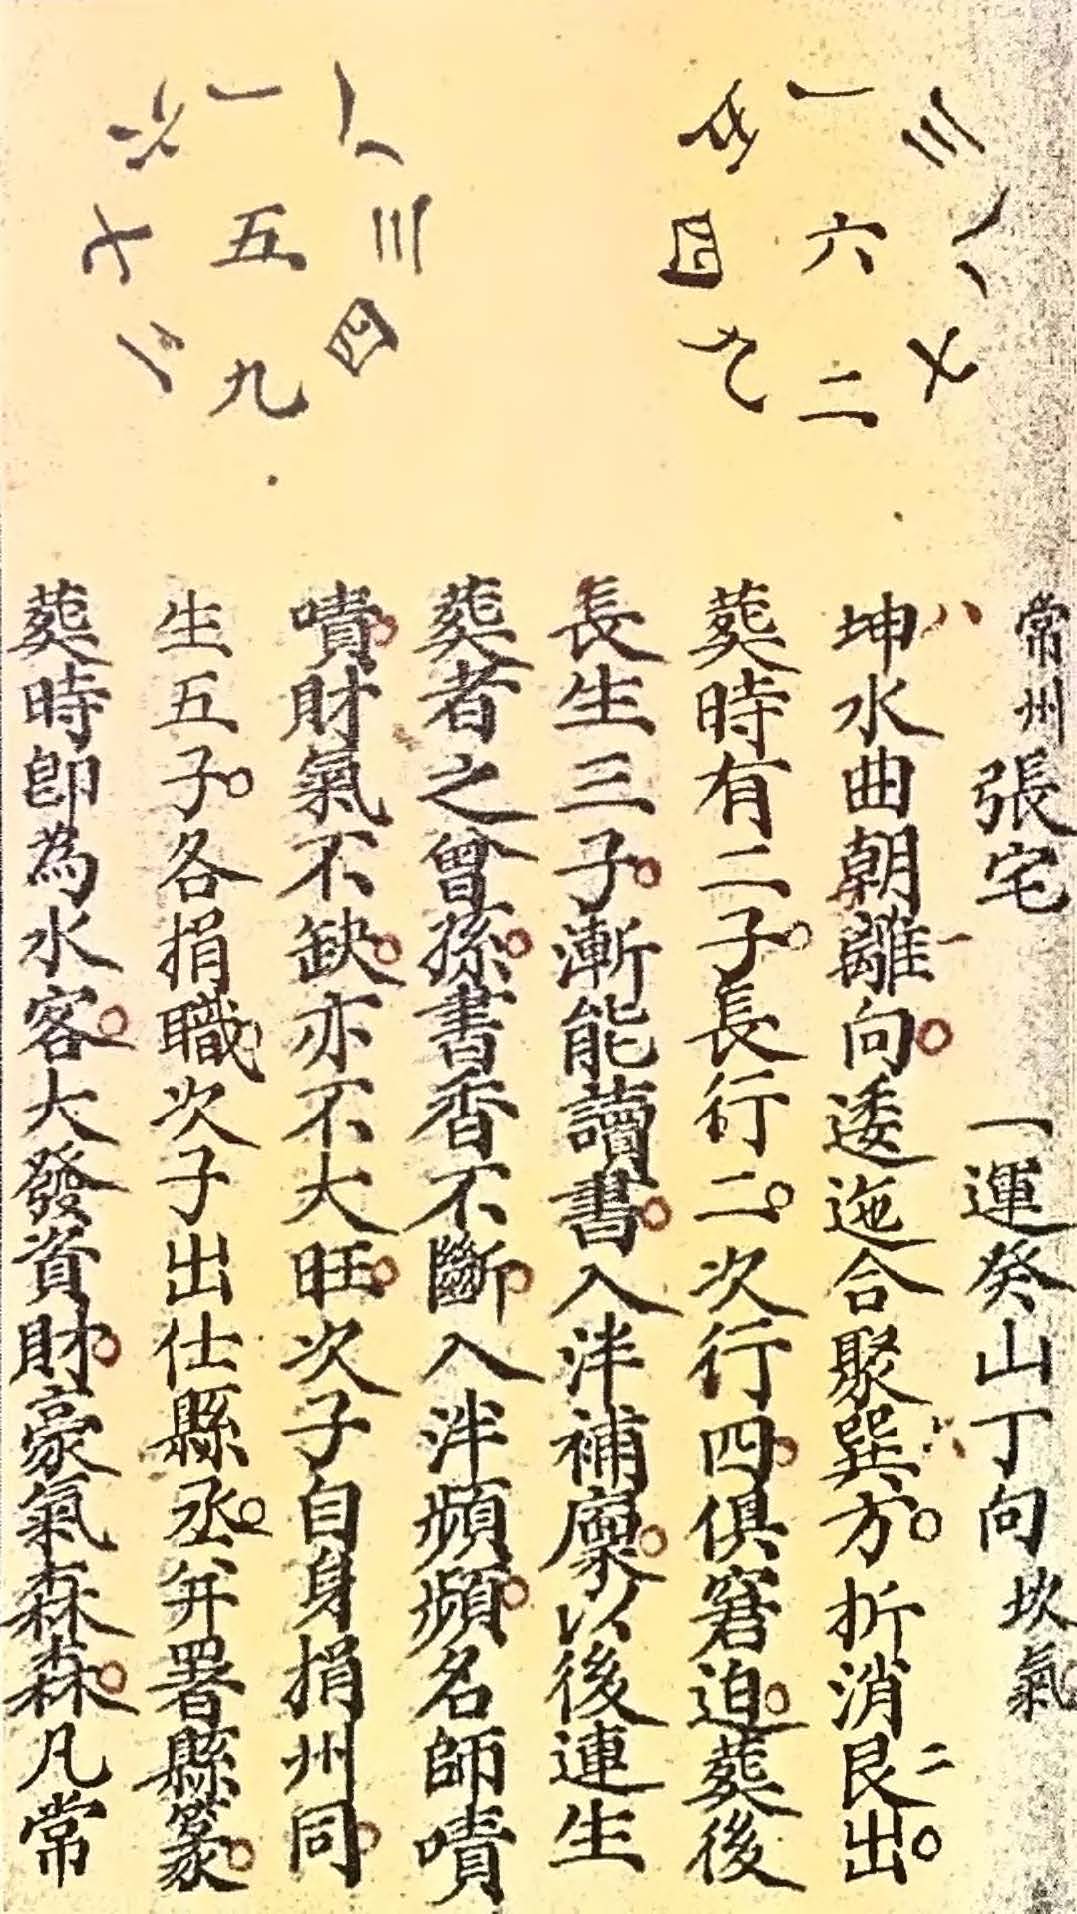 三八七
一六二
五四九
八三四
一五九
六七二
常州張宅 一運癸山丁向 坎氣
坤水曲朝離向逶迤合聚巽方折消艮出
八
一
二
葬時有二子長行二次行四俱窘迫葬後
長生三子漸能讀書入泮補廩以後連生
葬者之曾孫書香不斷入泮頻頻名師嘖
嘖財氣不缺亦不大旺次子自身捐州同
生五子各捐職次子出仕縣丞弁署縣篆
葬時卽為水客大發資財豪氣森森凡常